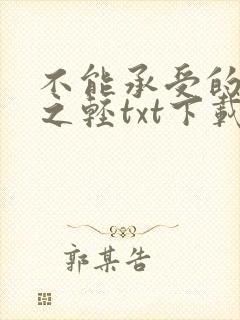 不能承受的
之轻txt下载
郭某告